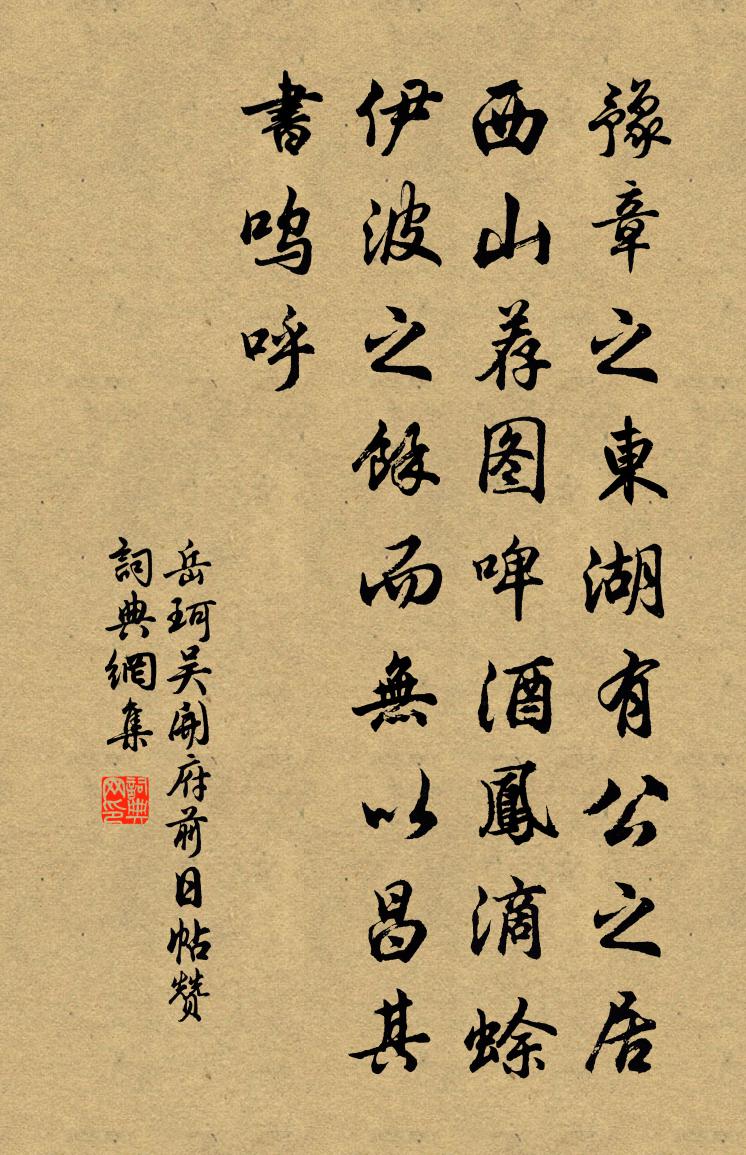 豫章之東湖有公之居
西山荐图啤酒鳳滴蜍
伊波之餘而無以昌其
書呜呼
岳珂吴開府前日帖贊
詞典網集
詞典网印